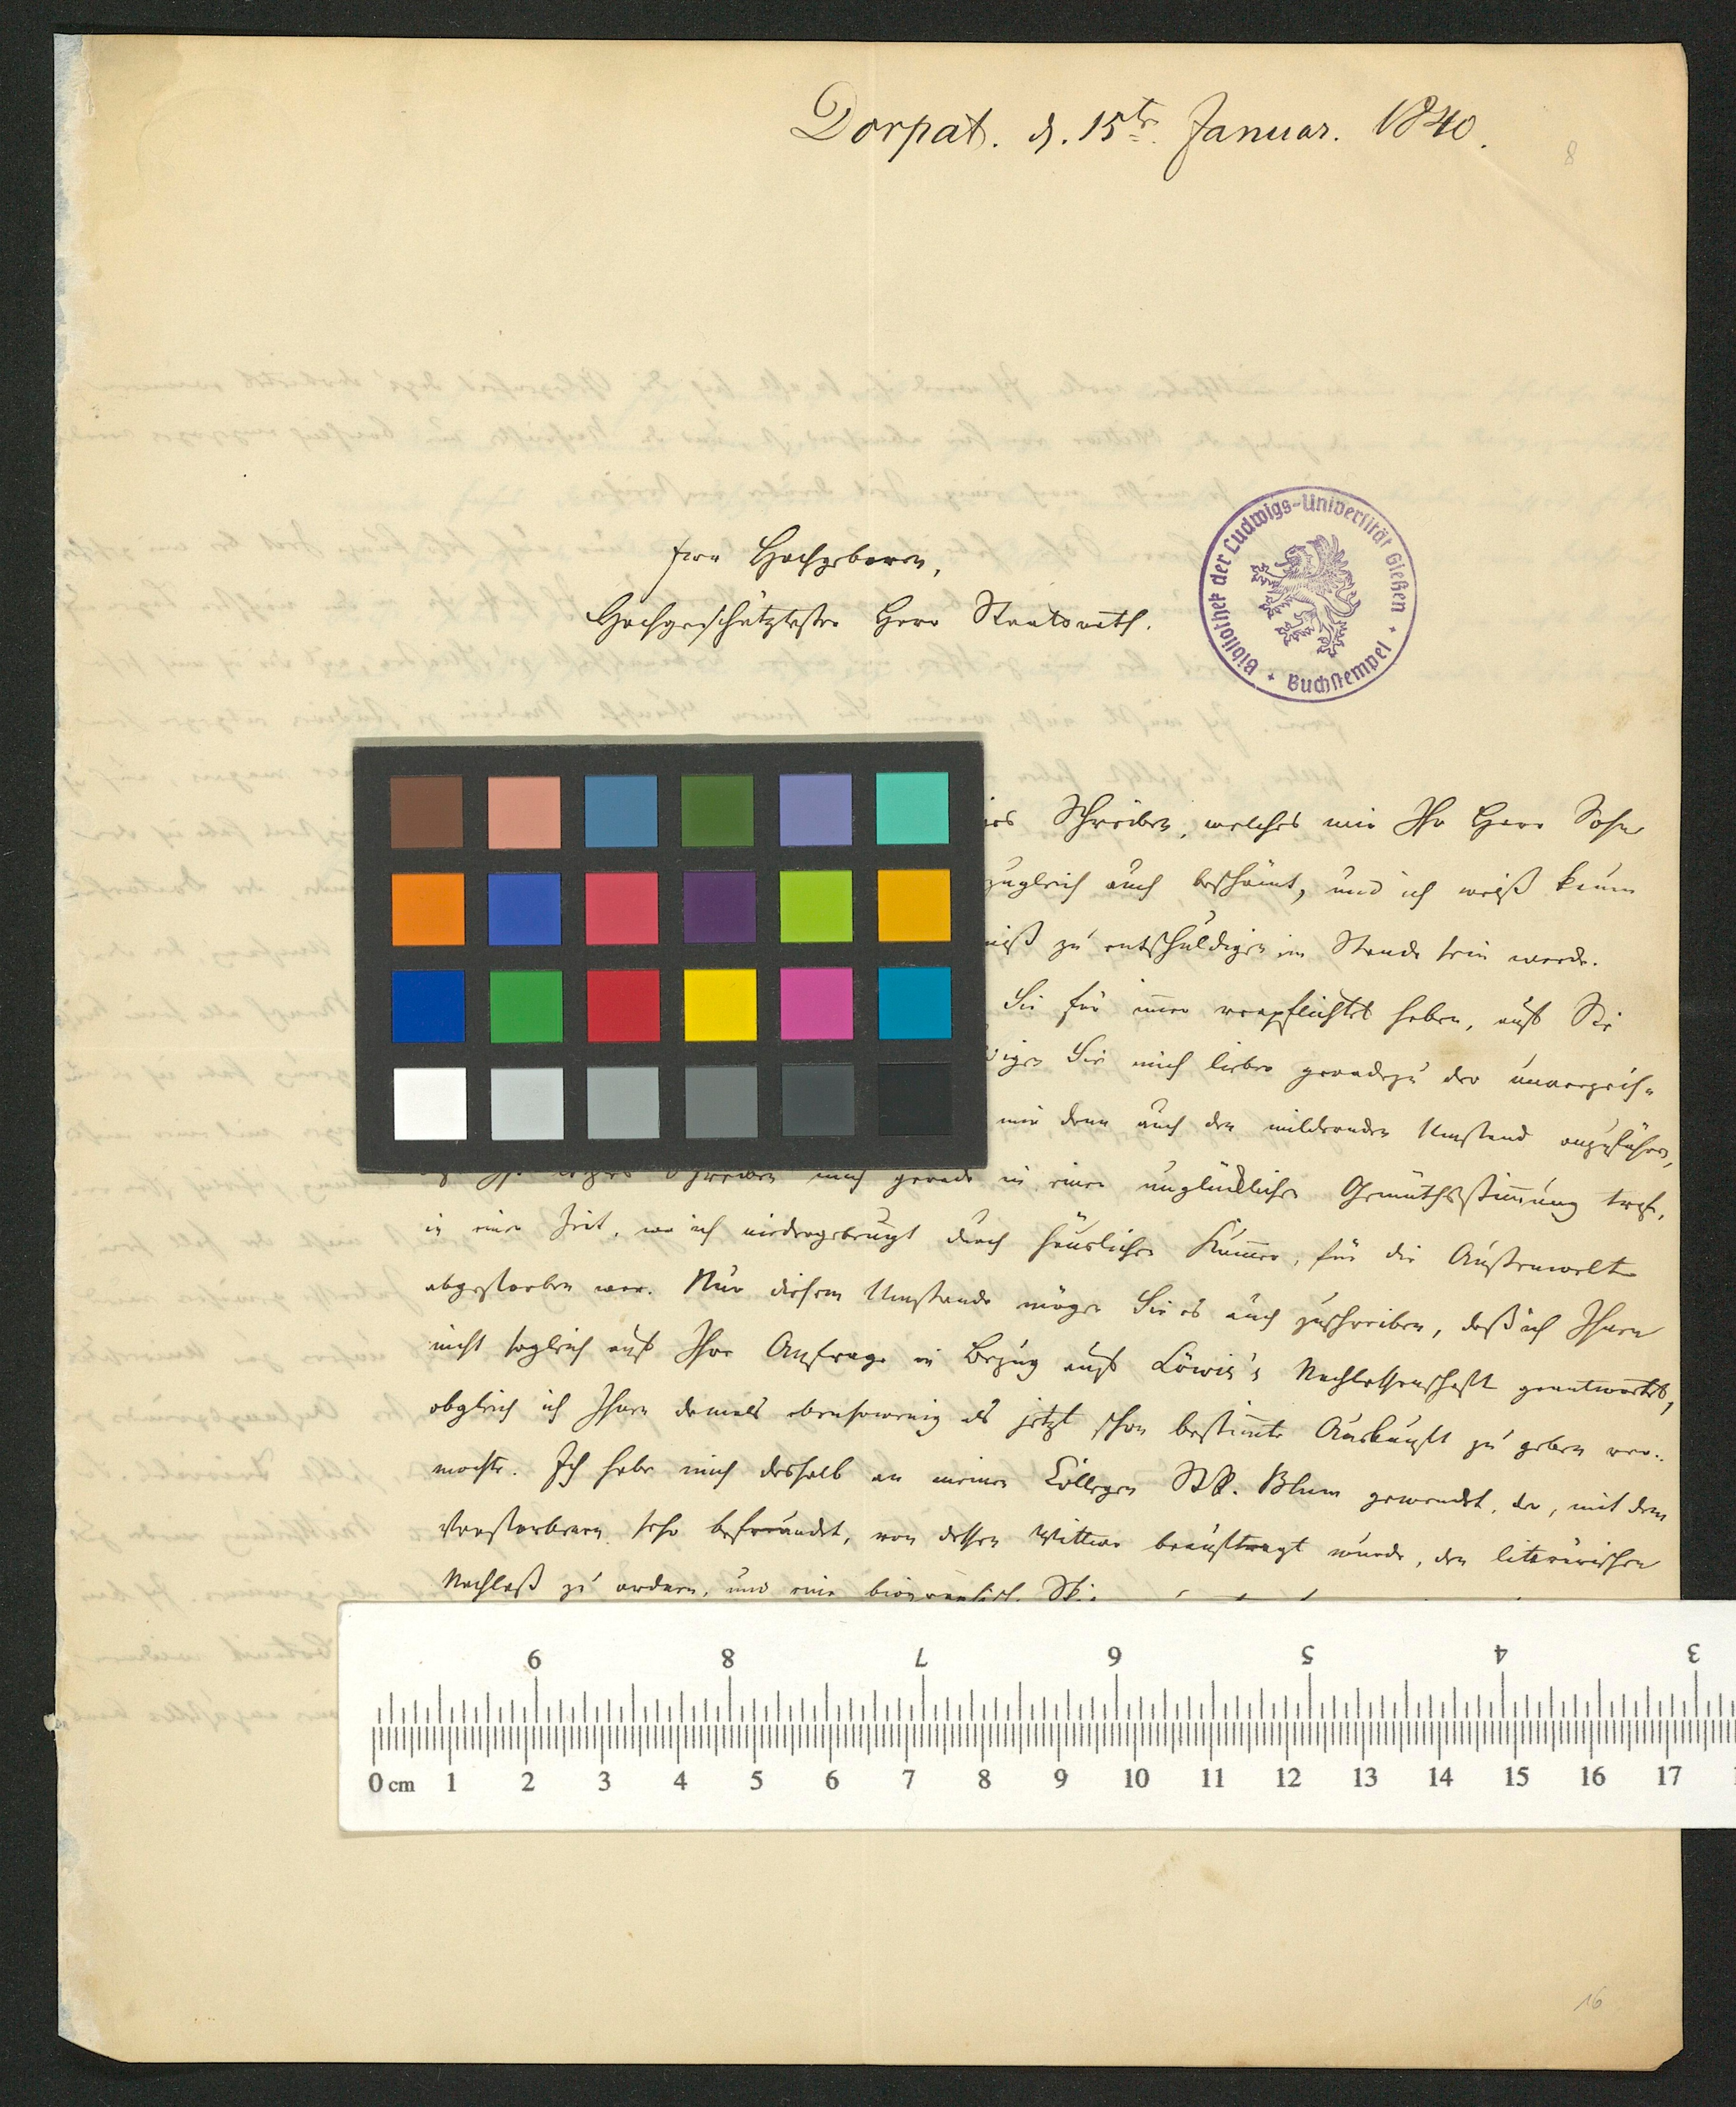 8
Dorpat. d. 15ten Januar. 1840.
Bibliothek der Ludwigs-Universität Gießen + Buchstempel +
Hochgeborn,
Hochgeschätztester Herr Staatsrath.
Schreiben, welches mir Ihr Herr Sohn
zugleich auch beschämt, und ich weiß kaum
niß zu entschuldigen im Stande sein werde.
Sie für immer verpflichtet haben, auf Sie
digen Sie mich lieber geradezu der unverzeih-
mir dann auch den mildernden Umstand anzuführen,
Ihr letztes Schreiben mich gerade in einer unglücklichen Gemüthsstimmung traf,
in einer Zeit, wo ich niedergebeugt durch häuslichen Kummer, für die Außenwelt
abgestorben war. Nur diesem Umstande mögen Sie es auch zuschreiben, daß ich Ihnen
nicht sogleich auf Ihre Anfrage in Bezug auf Löwis's Nachlassenschaft geantwortet,
obgleich ich Ihnen damals ebensowenig als jetzt schon bestimmte Auskunft zu geben ver-
mochte. Ich habe mich deshalb an meinen Collegen StR. Blum gewendet, der, mit dem
Verstorbenen sehr befreundet, von dessen Wittwe beauftragt wurde, den literärischen
Nachlaß zu ordnen, und eine biographische
9 8 7 6 5 4 3
0 cm 1 2 3 4 5 6 7 8 9 10 11 12 13 14 15 16 17
16